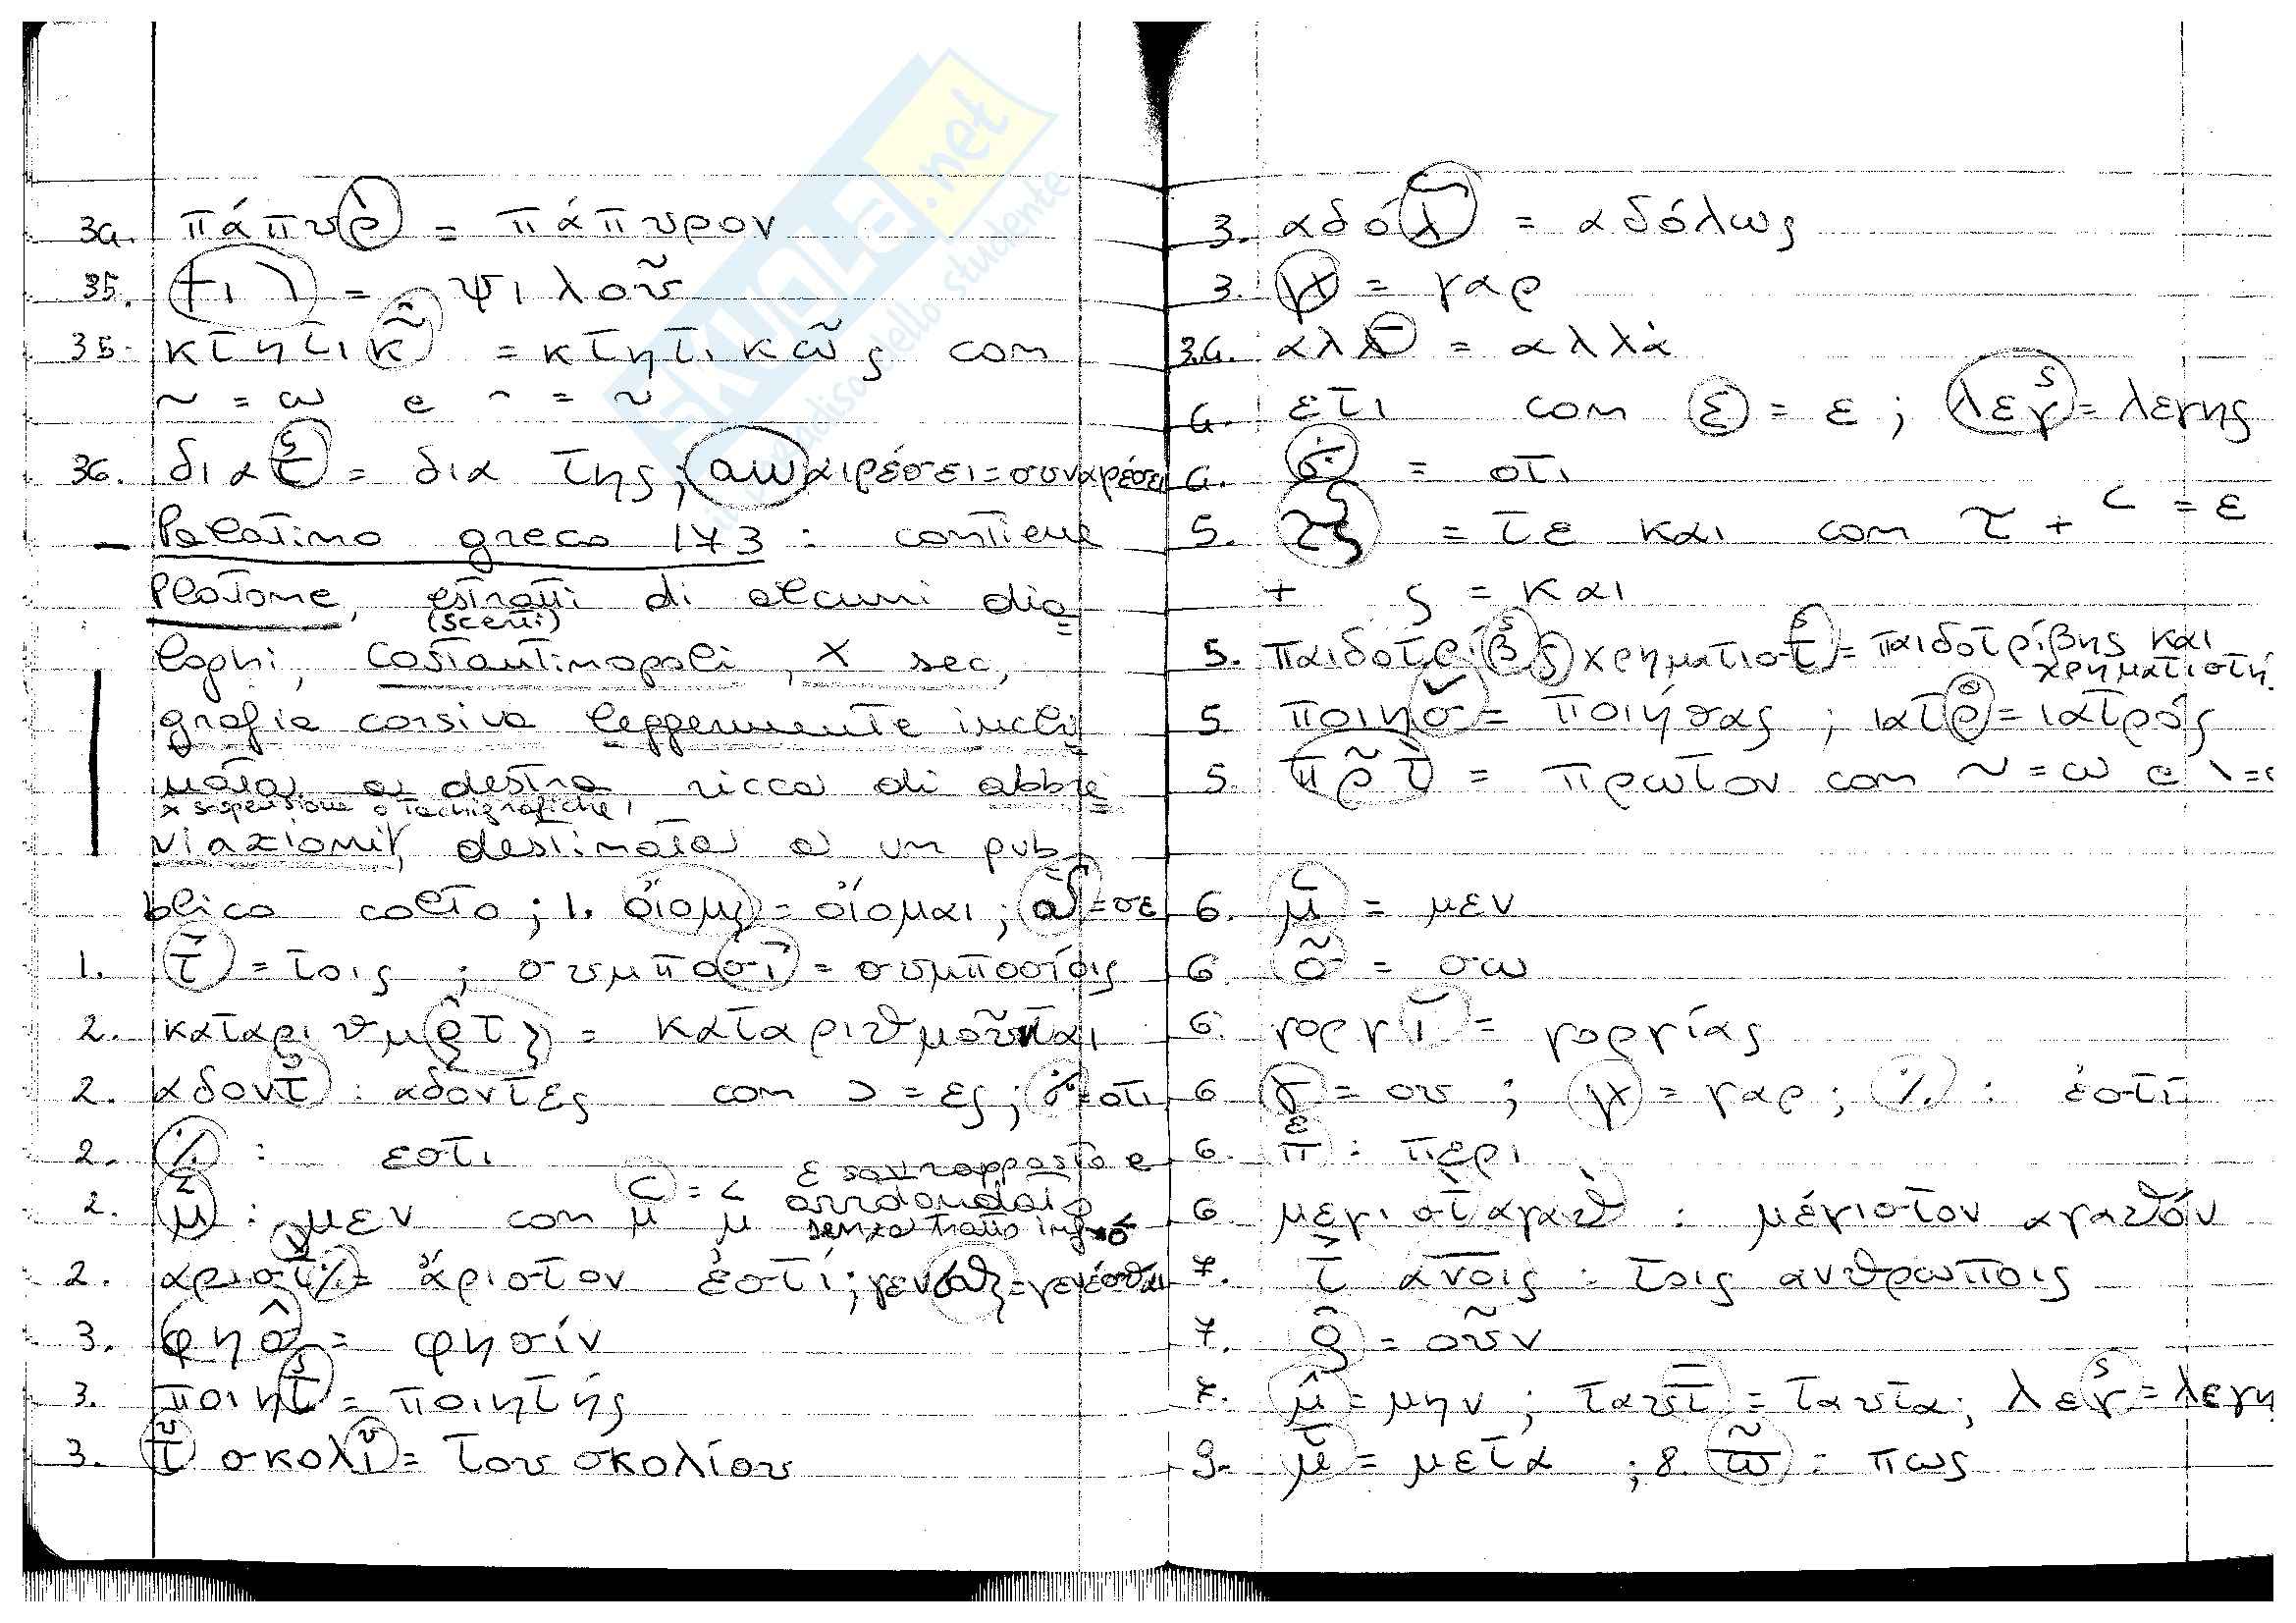 34. πάπυρ̀ = πάπυρον
35. = ψιλοῦ
35. κτητικ͂ = κτητικῶς con
~ = ω e ^ = ~
36. διατ = δια της; αιρέσει = συναιρέσει
- Palatino greco 173 : contiene
Platone, estratti di alcuni dia
(scelti)
loghi, Costantinopoli, X sec,
grafia corsiva leggermente incli
nata a destra ricca di abbre
x sospensione o tachigrafiche
viazioni, destinata a un pub
blico colto; 1. οἴομ = οἴομαι; = σε
1. τ = τοις ; συμποσι = συμποσίοις
2. καταριθμ τ = καταριθμοῦνται
2. αδοντ : αδόντες con = ες; = οτι
2. ⁒ : εστι
ε sovrapposto e
2. μ : μεν con μ = μ arrotondato
senza tratto inf
2. αριστ⁒ = ἄριστον ἐστί; γεν = γενέσθαι
3. φησ = φησίν
3. ποιητ = ποιητής
3. τ σκολι = του σκολίου
3. αδόλ = αδόλως
3. = γαρ
34. αλλ = αλλὰ
4. ετι con = ε ; λεγ = λεγης
4. = οτι
5. = τε και con τ + = ε
+ ϛ = και
5. παιδοτριβ ϛ χρηματιστ = παιδοτρίβης και
χρηματιστή
5 ποιησ = ποιήσας ; ιατρ = ιατρός
5. πρ͂τ̀ = πρωτον con ~ = ω e \ =
6. μ = μεν
6 σ͂ = σω
6. γοργι = γοργίας
6 = ου ; = γαρ ; ⁒ : ἐστί
6. π : περι
6 μεγιστ̀ αγαθ̀ : μέγιστον αγαθόν
7. τ ανοις : τοις ανθρωποις
7. = οῦν
7. μ = μην ; ταυτ = ταυτα; λεγ = λεγη
9. μ = μετα ; 8. = πως